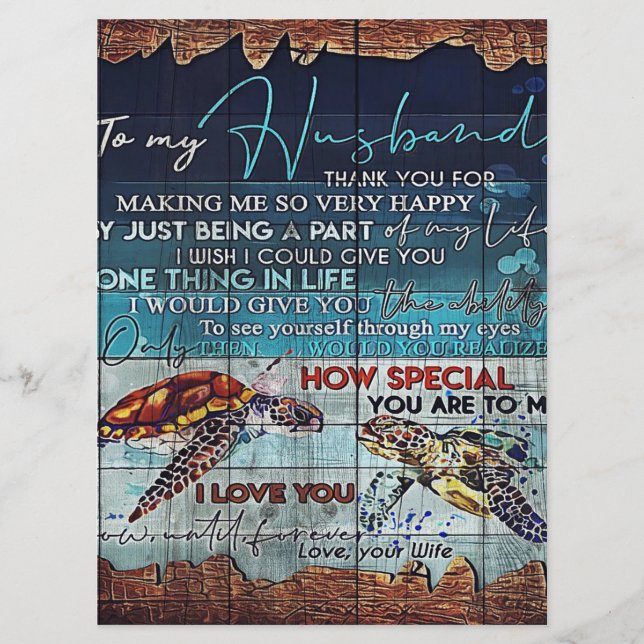 To my Husband
THANK YOU FOR
MAKING ME SO VERY HAPPY
BY JUST BEING A PART of my Life
I WISH I COULD GIVE YOU
ONE THING IN LIFE
I WOULD GIVE YOU the ability
To see yourself through my eyes
Only THEN WOULD YOU REALIZE
HOW SPECIAL
YOU ARE TO M
I LOVE YOU
ow, until, forever
Love, your Wife